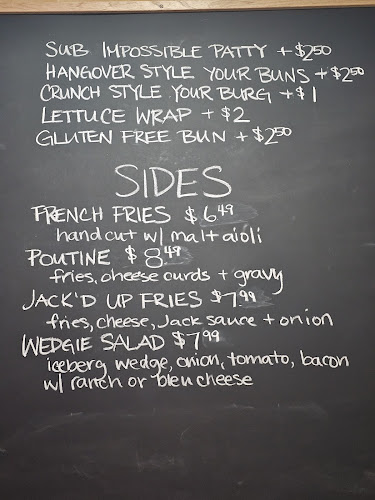 SUB IMPOSSIBLE PATTY + $2.50
HANGOVER STYLE YOUR BUNS + $2.50
CRUNCH STYLE YOUR BURG + $1
LETTUCE WRAP + $2
GLUTEN FREE BUN + $2.50
SIDES
FRENCH FRIES $6.49
hand cut w/ malt aioli
POUTINE $8.49
fries, cheese curds + gravy
JACK'D UP FRIES $7.99
fries, cheese, Jack sauce + onion
WEDGIE SALAD $7.99
iceberg wedge, onion, tomato, bacon
w/ ranch or bleu cheese